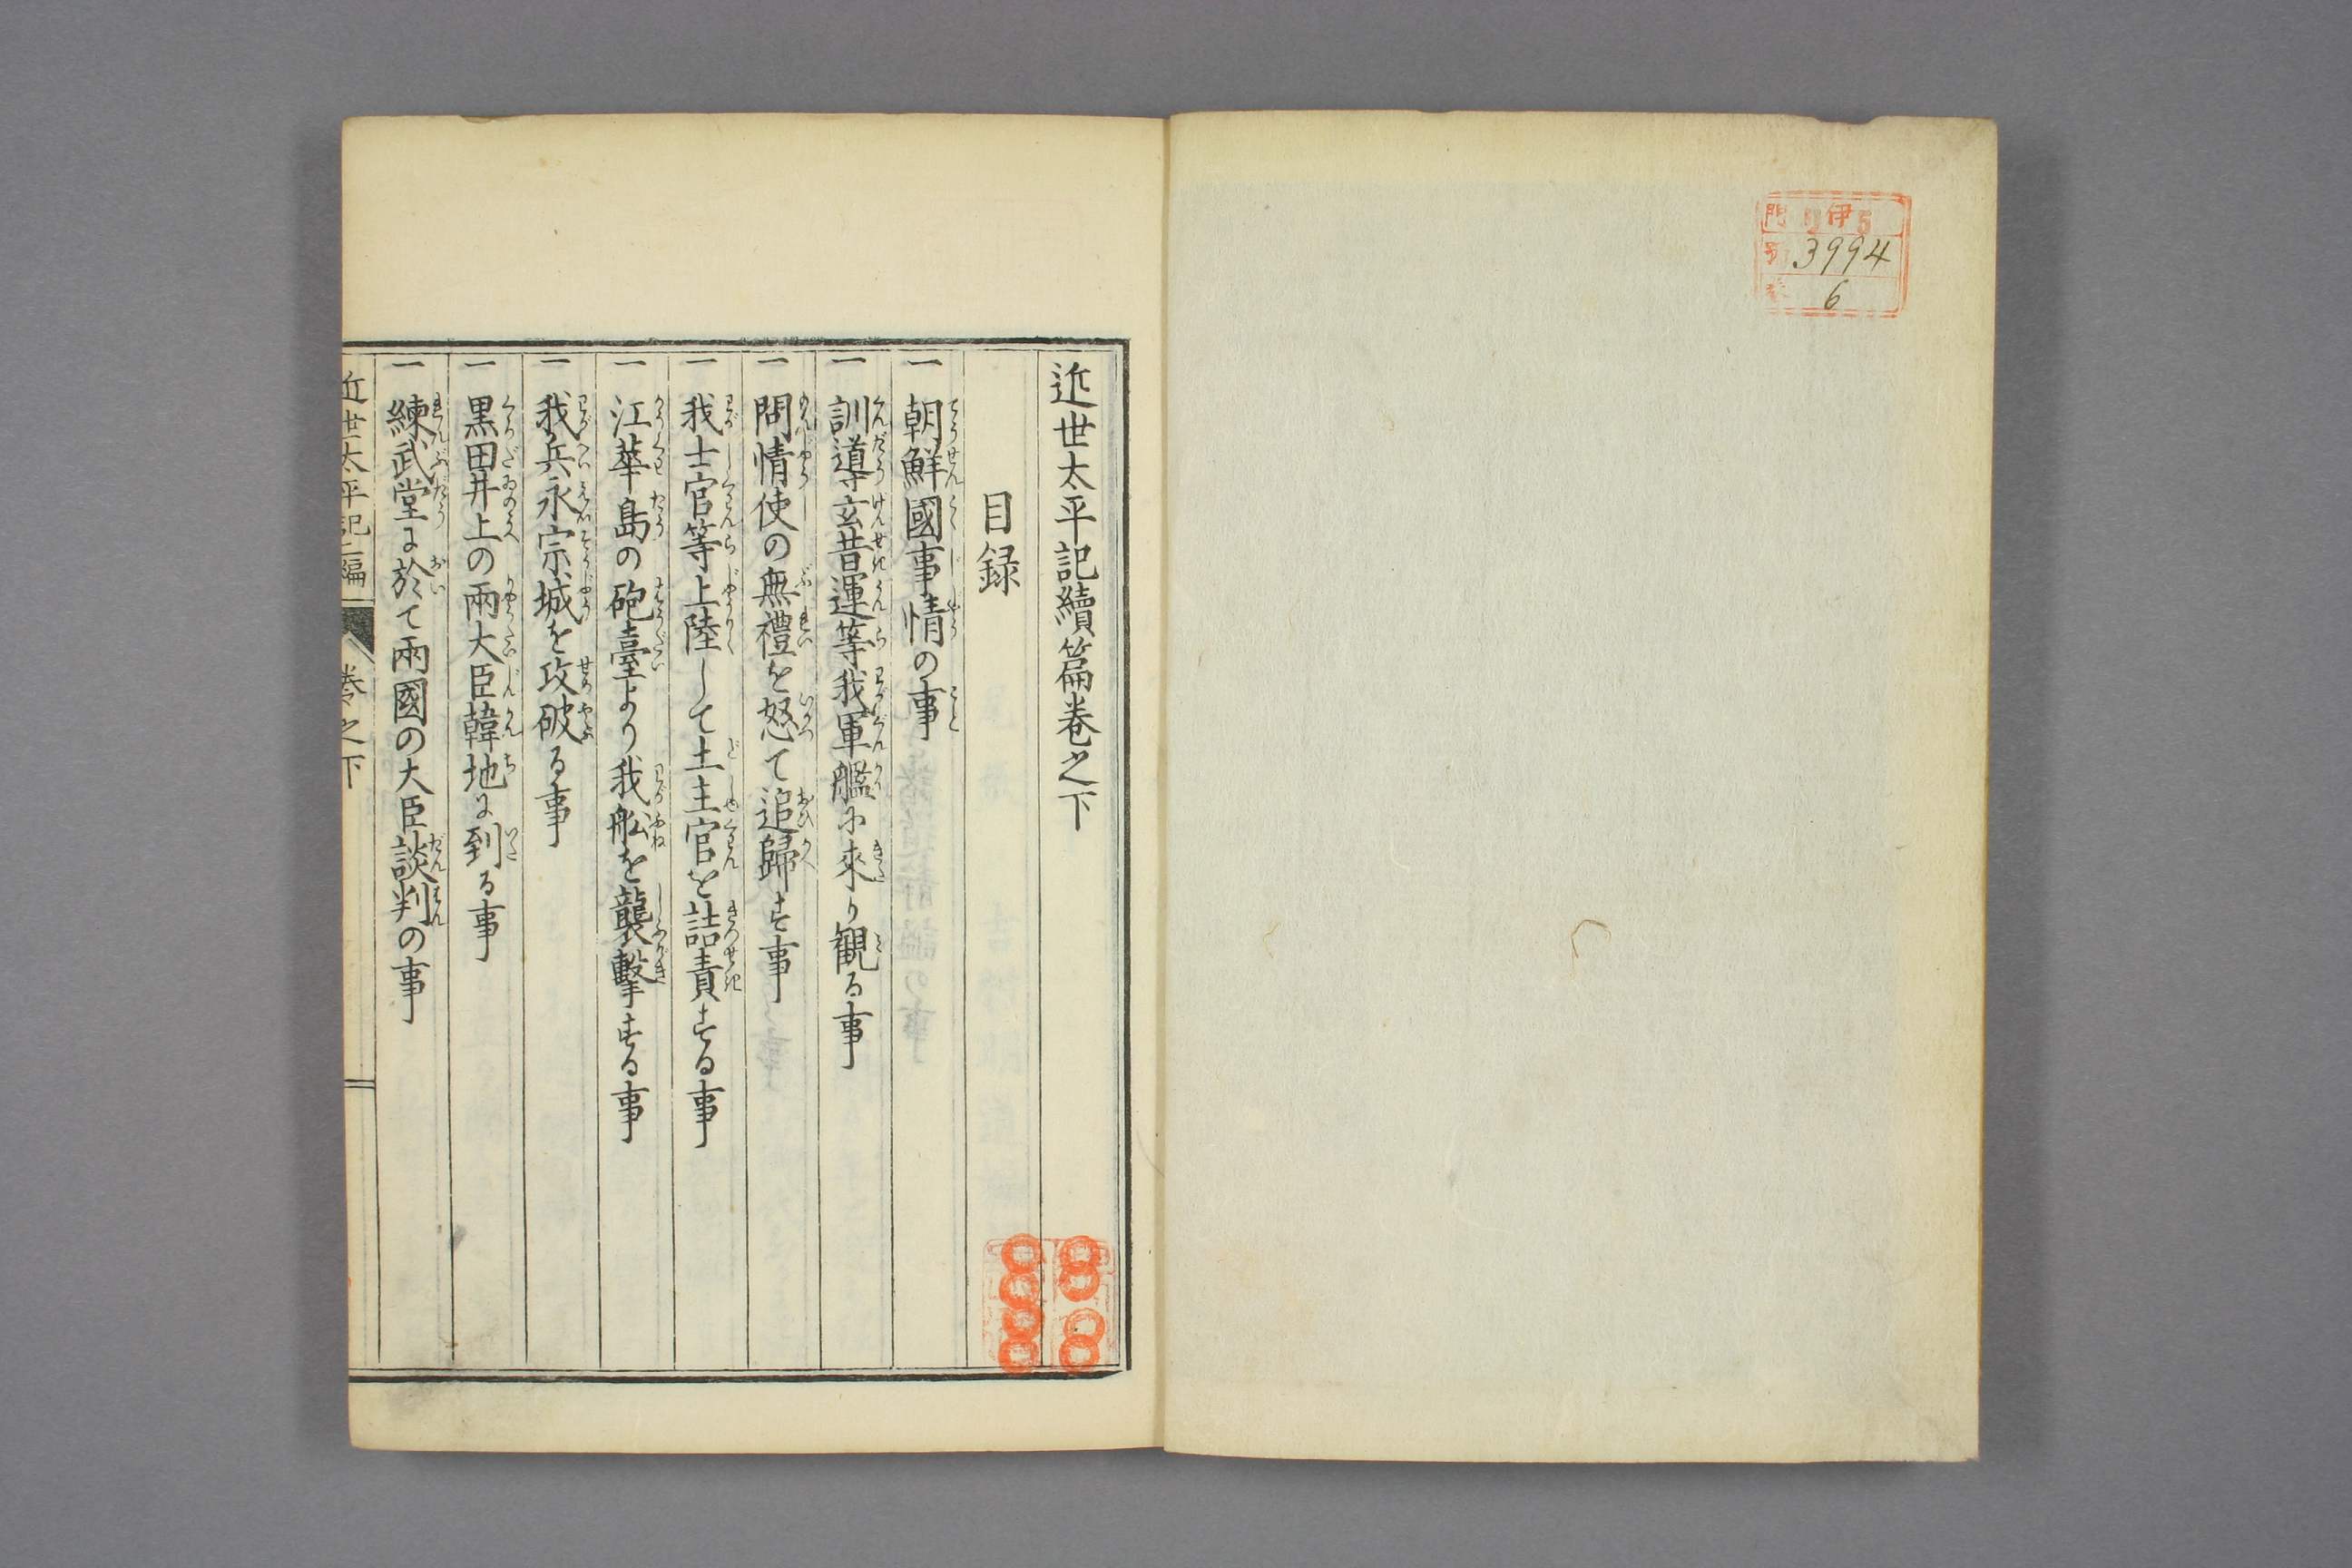 門 伊5
號 3994
卷 6
近世太平記續篇卷之下
目録
一 朝鮮國事情の事
一 訓導玄昔運等我軍艦に來り観る事
一 問情使の無禮を怒て追歸す事
一 我士官等上陸して土主官を詰責する事
一 江華島の砲臺より我舩を襲擊する事
一 我兵永宗城を攻破る事
一 黒田井上の兩大臣韓地に到る事
一 練武堂に於て兩國の大臣談判の事
近世太平記二編 卷之下